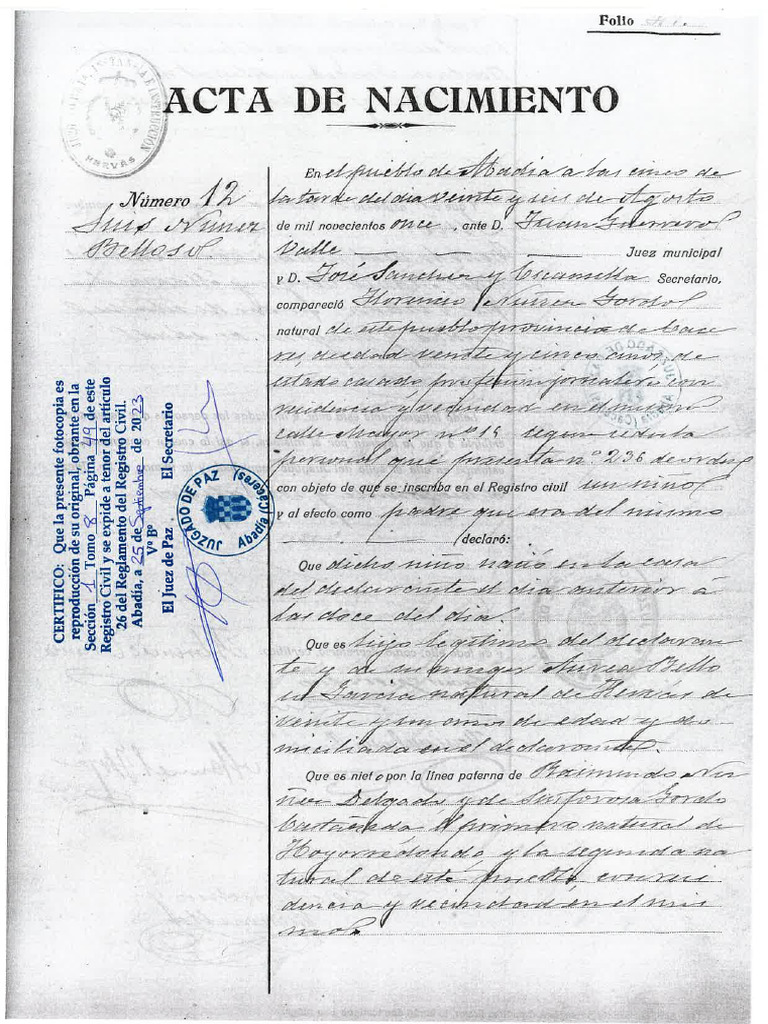 Folio
ACTA DE NACIMIENTO
HERVÁS
Número 12
Luis Núñez
Belloso
CERTIFICO: Que la presente fotocopia es
reproducción de su original, obrante en la
Sección 1 Tomo 8 Página 49 de este
Registro Civil y se expide a tenor del artículo
26 del Reglamento del Registro Civil.
Abadía, a 25 de Septiembre de 2023
Vº Bº
El Juez de Paz El Secretario
JUZGADO DE PAZ
Abadía (Cáceres)
En el pueblo de Abadía a las cinco de
la tarde del dia veinte y seis de Agosto
de mil novecientos once, ante D. Juan Guerrero
Valle Juez municipal
y D. José Sanchez y Secretario,
compareció Florencio Núñez Gordo
natural de este pueblo provincia de Cace
res, de edad veinte y cinco años, de
estado casado profesion jornalero con
residencia y vecindad en el mismo
calle Mayor nº 15 segun cedula
personal que presenta nº 236 de orden
con objeto de que se inscriba en el Registro civil un niño
y al efecto como padre que era del mismo
declaró:
Que dicho niño nació en la casa
del declarante el dia anterior á
las doce del dia.
Que es hijo legitimo del declaran
te y de su muger Bello
so Garcia natural de Hervás de
veinte y un años de edad y do
miciliada en el declarante.
Que es nieto por la línea paterna de Raimundo Nu
ñez Delgado y de Sinforosa Gordo
Castañeda el primero natural de
Hoyorredondo y la segunda na
tural de este pueblo, con resi
dencia y vecindad en el mis
mo.